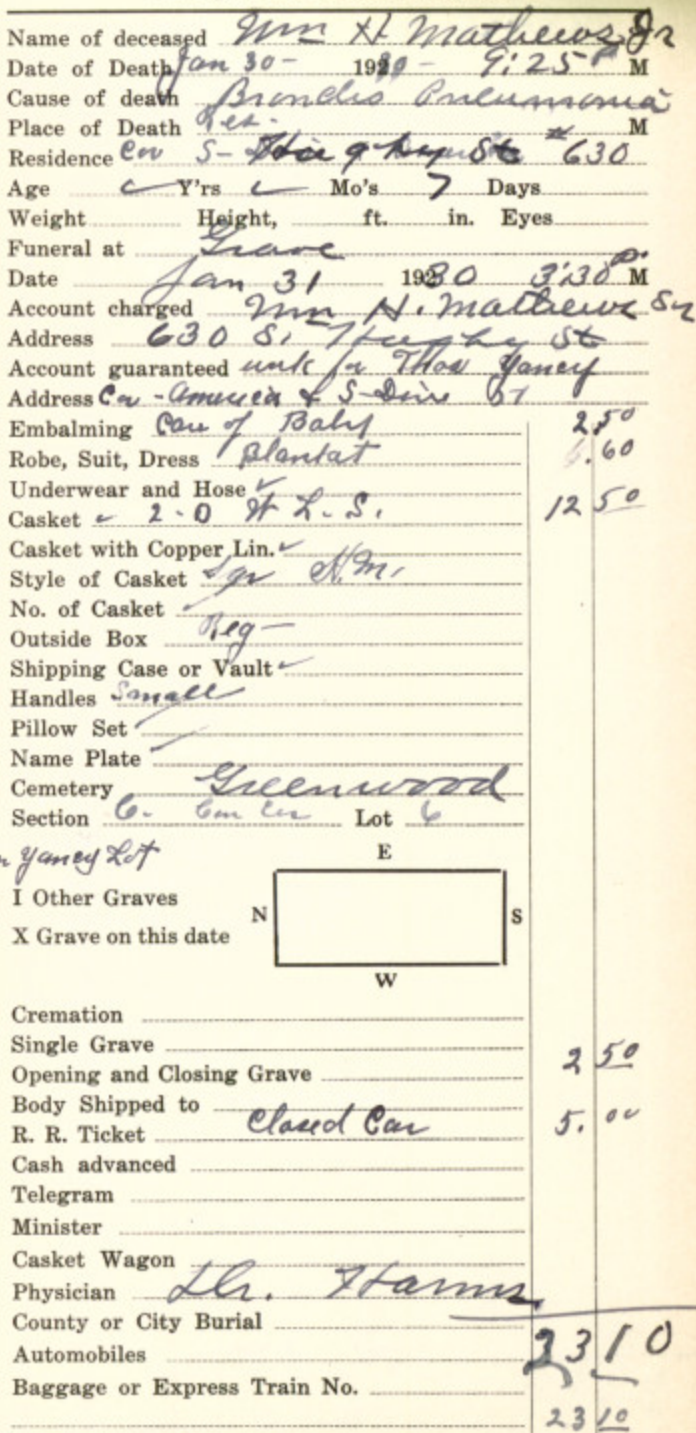 Name of deceased Wm H Mathews Jr
Date of Death Jan 30- 1930- 9:25 P M
Cause of death Pneumonia
Place of Death Res. M
Residence Cor S- St # 630
Age ✓ Y'rs ✓ Mo's 7 Days
Weight Height, ft. in. Eyes
Funeral at Grave
Date Jan 31 1930 3:30 P. M
Account charged Wm H. Mathews Sr
Address 630 S. Hughey St
Account guaranteed Thos Yancy
Address Cor - America & S-Divi St
Embalming Care of Baby 2.50
Robe, Suit, Dress .60
Underwear and Hose ✓
Casket ✓ 2-0 W L. S. 12 50
Casket with Copper Lin. ✓
Style of Casket
No. of Casket
Outside Box Reg-
Shipping Case or Vault ✓
Handles Small
Pillow Set
Name Plate
Cemetery Greenwood
Section 6. Lot 6
Yancy Lot
E
I Other Graves
N S
X Grave on this date
W
Cremation
Single Grave
Opening and Closing Grave 2 50
Body Shipped to
R. R. Ticket Closed Car 5.00
Cash advanced
Telegram
Minister
Casket Wagon
Physician Dr.
County or City Burial
Automobiles 23 10
Baggage or Express Train No.
23 10